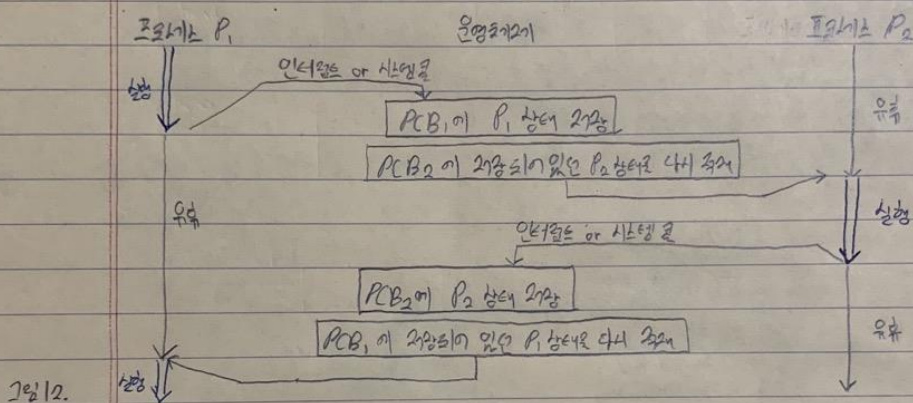 프로세스 P₁ 운영체제 프로세스 P₂
인터럽트 or 시스템 콜
실행
PCB₁에 P₁ 상태 저장
유휴
PCB₂에 저장되어 있던 P₂ 상태를 다시 적재
유휴
실행
인터럽트 or 시스템 콜
PCB₂에 P₂ 상태 저장
PCB₁에 저장되어 있던 P₁ 상태를 다시 적재
유휴
실행
그림 12.